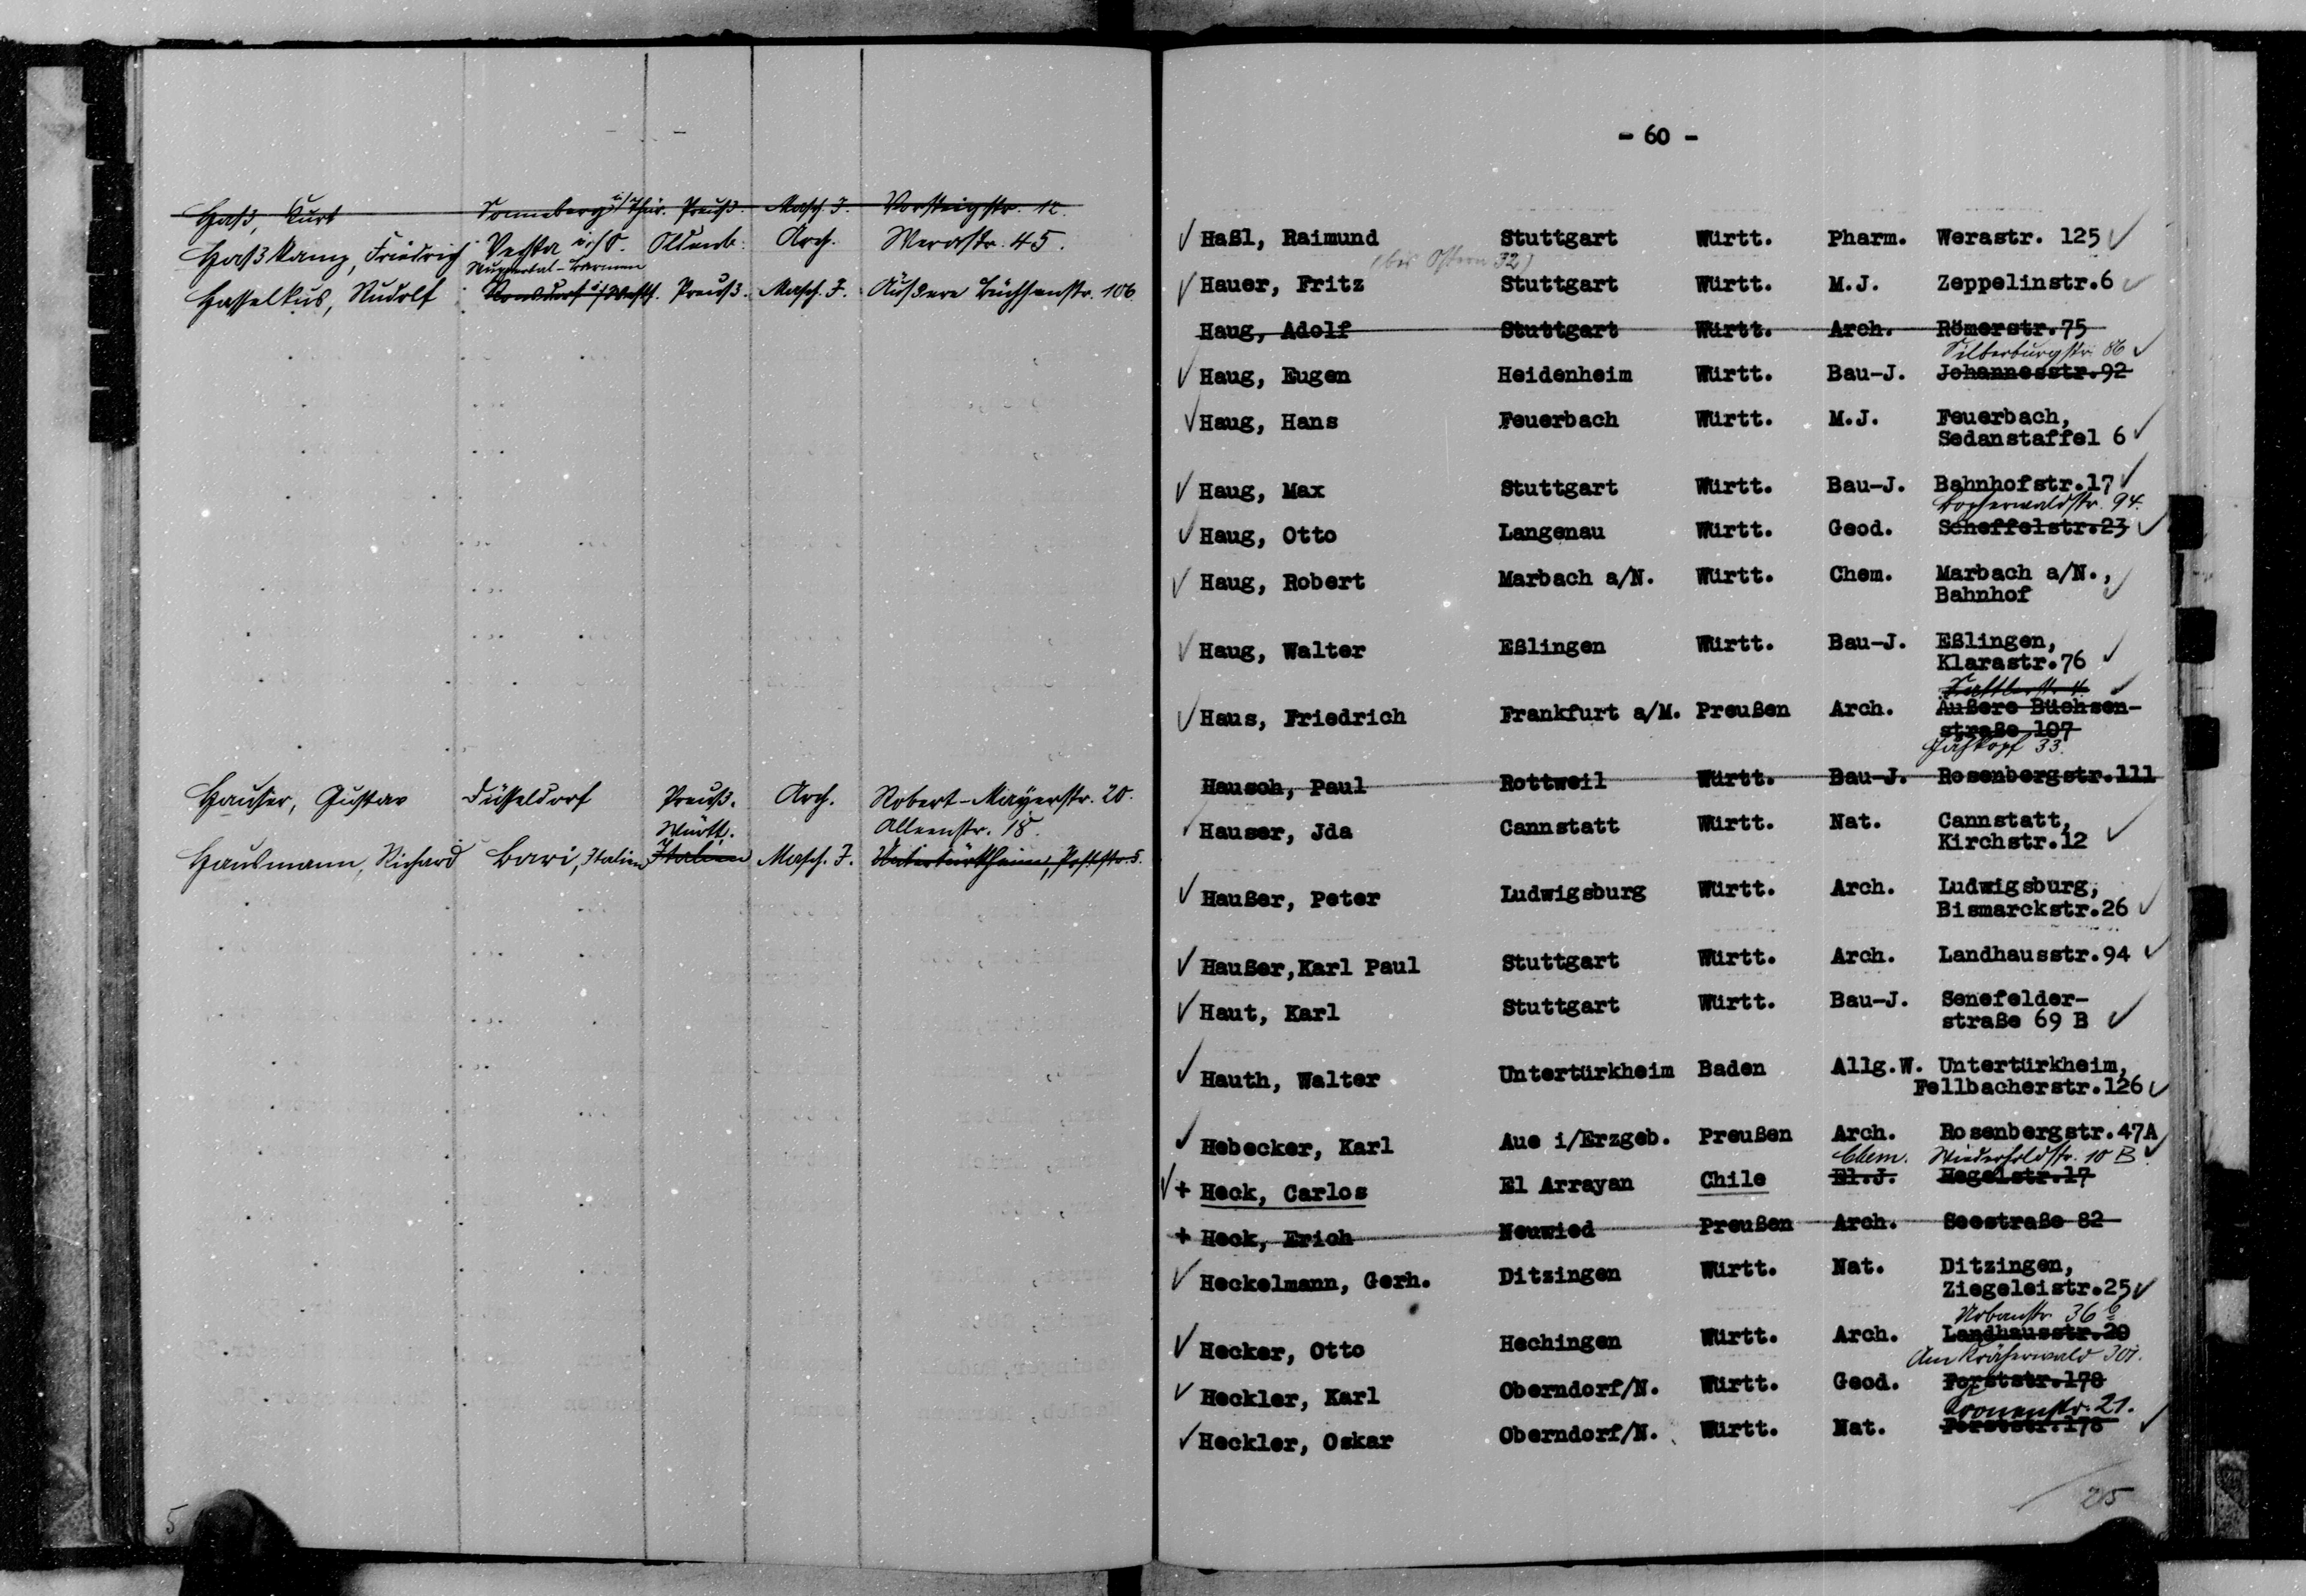 Haß, Kurt Sonneberg i/Thür. Preuß. Masch. I. Vorsteigstr. 12.
Haßkamp, Friedrich Vechta i/O. Oldenb. Arch. Werastr. 45.
Wuppertal-Barmen
Hasselkus, Rudolf Preuß. Masch. I. Äußere Büchsenstr. 106
Hauser, Gustav Düsseldorf Preuß. Arch. Robert-Mayerstr. 20.
Württ. Alleenstr. 18.
Hausmann, Richard Bari, Italien Italien Masch. I. Untertürkheim, Poststr. 5.
5
- 60 -
Haßl, Raimund Stuttgart Württ. Pharm. Werastr. 125
(bis Ostern 32)
Hauer, Fritz Stuttgart Württ. M.J. Zeppelinstr.6
Haug, Adolf Stuttgart Württ. Arch. Römerstr.75
Silberburgstr. 86
Haug, Eugen Heidenheim Württ. Bau-J. Johannesstr.92
Haug, Hans Feuerbach Württ. M.J. Feuerbach,
Sedanstaffel 6
Haug, Max Stuttgart Württ. Bau-J. Bahnhofstr.17
Bopserwaldstr. 94.
Haug, Otto Langenau Württ. Geod. Scheffelstr.23
Haug, Robert Marbach a/N. Württ. Chem. Marbach a/N.,
Bahnhof
Haug, Walter Eßlingen Württ. Bau-J. Eßlingen,
Klarastr.76
Haus, Friedrich Frankfurt a/M. Preußen Arch. Äußere Büchsen-
straße 107
33.
Hausch, Paul Rottweil Württ. Bau-J. Rosenbergstr.111
Hauser, Jda Cannstatt Württ. Nat. Cannstatt,
Kirchstr.12
Haußer, Peter Ludwigsburg Württ. Arch. Ludwigsburg,
Bismarckstr.26
Haußer,Karl Paul Stuttgart Württ. Arch. Landhausstr.94
Haut, Karl Stuttgart Württ. Bau-J. Senefelder-
straße 69 B
Hauth, Walter Untertürkheim Baden Allg.W. Untertürkheim,
Fellbacherstr.126
Hebecker, Karl Aue i/Erzgeb. Preußen Arch. Rosenbergstr.47A
Chem. Wiederholdstr. 10 B.
+ Heck, Carlos El Arrayan Chile El.J. Hegelstr.17
+ Heck, Erich Neuwied Preußen Arch. Seestraße 82
Heckelmann, Gerh. Ditzingen Württ. Nat. Ditzingen,
Ziegeleistr.25
36
Hecker, Otto Hechingen Württ. Arch. Landhausstr.20
Am Kräherwald 301.
Heckler, Karl Oberndorf/N. Württ. Geod. Forststr.178
Kronenstr. 21.
Heckler, Oskar Oberndorf/N. Württ. Nat. Forststr.178
25